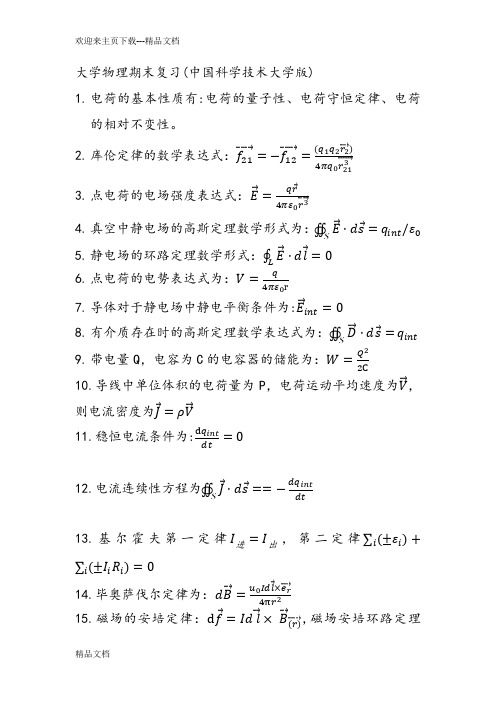 欢迎来主页下载---精品文档
大学物理期末复习(中国科学技术大学版)
1.电荷的基本性质有:电荷的量子性、电荷守恒定律、电荷
的相对不变性。
2.库伦定律的数学表达式：$\overrightarrow{f_{21}}=-\overrightarrow{f_{12}}=\frac{(q_1q_2\overrightarrow{r_2})}{4\pi q_0\overrightarrow{r_{21}^3}}$
3.点电荷的电场强度表达式：$\vec{E}=\frac{q\vec{r}}{4\pi\varepsilon_0\overrightarrow{r^3}}$
4.真空中静电场的高斯定理数学形式为：$\oiint_S\vec{E}\cdot d\vec{s}=q_{int}/\varepsilon_0$
5.静电场的环路定理数学形式：$\oint_L\vec{E}\cdot d\vec{l}=0$
6.点电荷的电势表达式为：$V=\frac{q}{4\pi\varepsilon_0 r}$
7.导体对于静电场中静电平衡条件为:$\vec{E}_{int}=0$
8.有介质存在时的高斯定理数学表达式为：$\oiint_S\vec{D}\cdot d\vec{s}=q_{int}$
9.带电量Q，电容为C的电容器的储能为：$W=\frac{Q^2}{2C}$
10.导线中单位体积的电荷量为P，电荷运动平均速度为$\vec{V}$，
则电流密度为$\vec{J}=\rho\vec{V}$
11.稳恒电流条件为:$\frac{dq_{int}}{dt}=0$
12.电流连续性方程为$\oiint_S\vec{J}\cdot d\vec{s}==-\frac{dq_{int}}{dt}$
13.基尔霍夫第一定律$I_{进}=I_{出}$，第二定律$\sum_i(\pm\varepsilon_i)+$
$\sum_i(\pm I_iR_i)=0$
14.毕奥萨伐尔定律为：$d\vec{B}=\frac{u_0Id\vec{l}\times\overrightarrow{e_r}}{4\pi r^2}$
15.磁场的安培定律：$d\vec{f}=Id\vec{l}\times\overrightarrow{B_{(\vec{r})}}$，磁场安培环路定理
精品文档